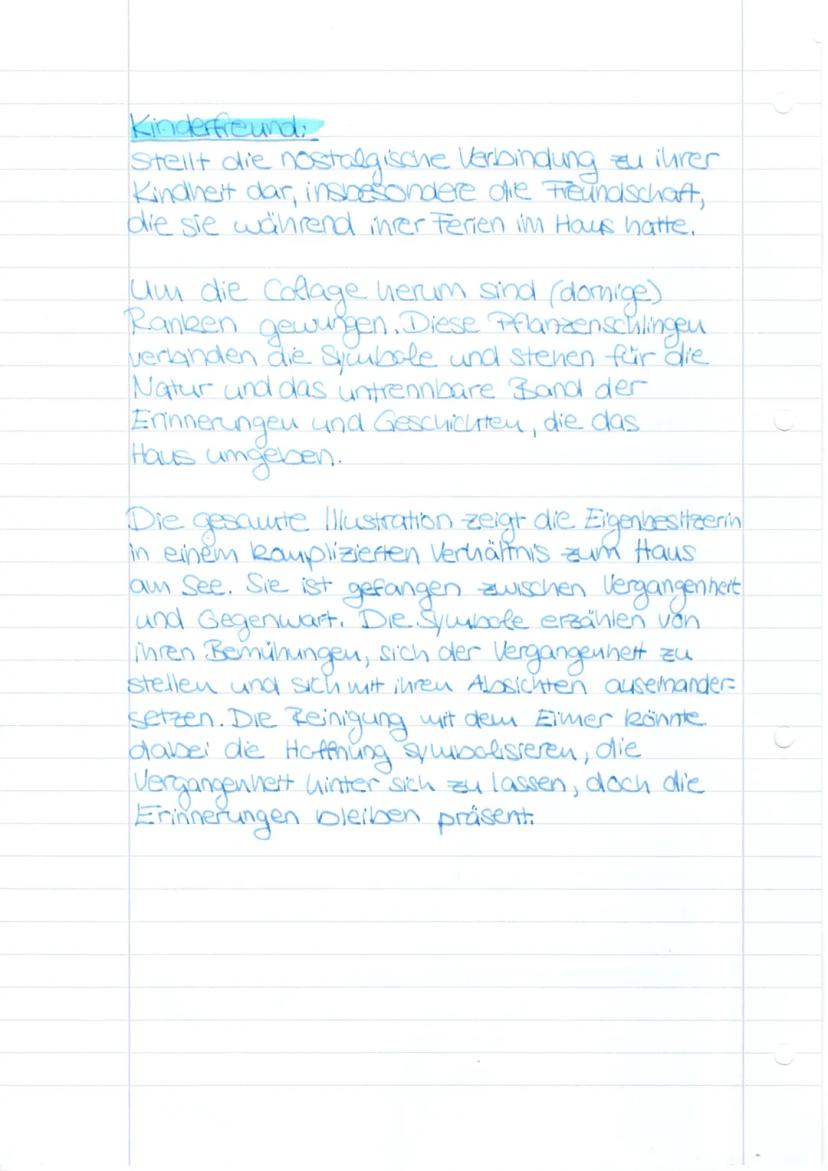 Kinderfreund:
stellt die nostalgische Verbindung zu ihrer
Kindheit dar, insbesondere die Freundschaft,
die sie während ihrer Ferien im Haus hatte.
Um die Collage herum sind (dornige)
Ranken gewungen. Diese Pflanzenschlingen
verbinden die Symbole und stehen für die
Natur und das untrennbare Band der
Erinnerungen und Geschichten, die das
Haus umgeben.
Die gesamte Illustration zeigt die Eigenbesitzerin
in einem komplizierten Verhältnis zum Haus
am See. Sie ist gefangen zwischen Vergangenheit
und Gegenwart. Die Symbole erzählen von
ihren Bemühungen, sich der Vergangenheit zu
stellen und sich mit ihren Absichten auseinander=
setzen. Die Reinigung mit dem Eimer könnte
dabei die Hoffnung symbolisieren, die
Vergangenheit hinter sich zu lassen, doch die
Erinnerungen bleiben präsent.